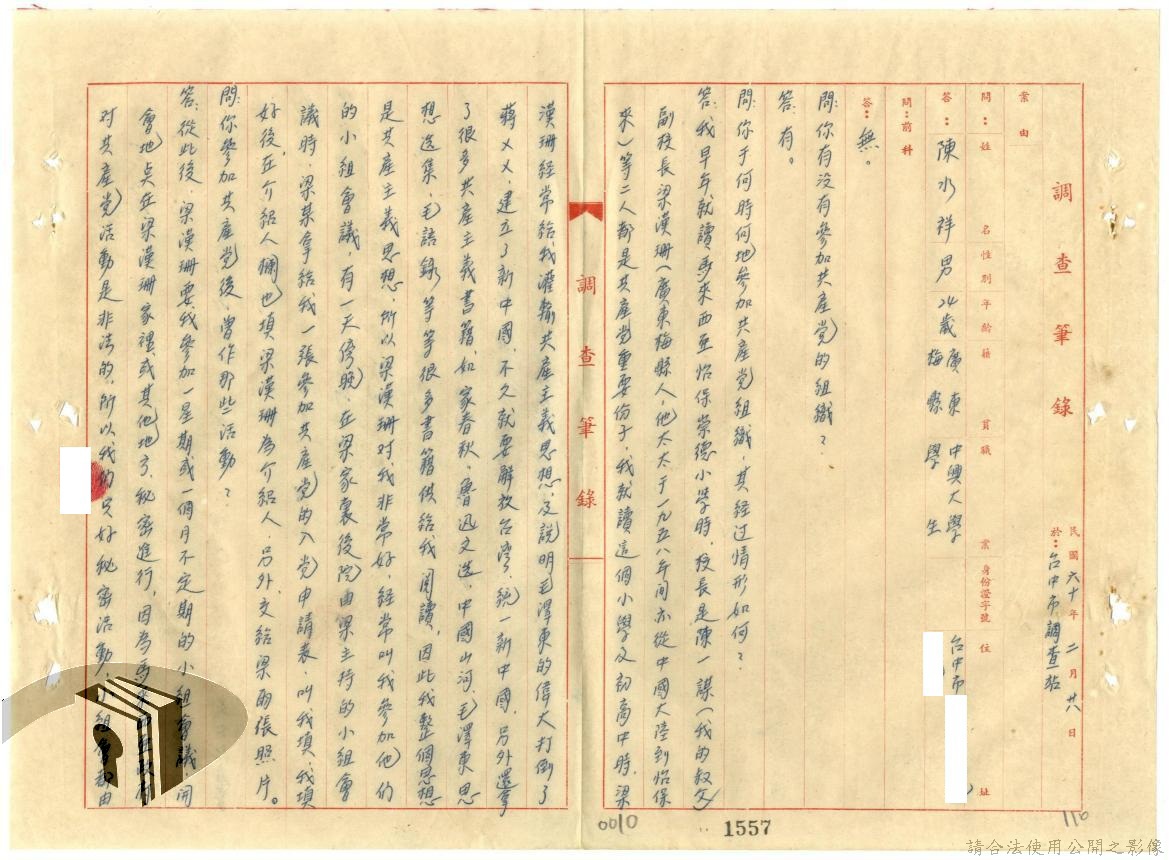 調查筆錄
民國六十年二月廿日
於：台中市調查站
案由
問：姓名性別年齡籍貫職業身份證字號住址
答：陳水祥 男 24歲 廣東梅縣 中興大學學生 台中市
問：前科
答：無。
問：你有没有參加共產党的組織？
答：有。
問：你于何時何地參加共產党組織，其経过情形如何？
答：我早年就讀馬來西亚怡保崇德小學時，校長是陳一謀（我的叔父
副校長梁漢珊（廣東梅縣人，他太太于一九五八年間亦從中國大陸到怡保
來）等二人都是共產党重要份子，我就讀這個小學及初高中時，梁
調查筆錄
漢珊経常給我灌輸共產主義思想，及說明毛澤東的偉大打倒了
蔣××，建立了新中國，不久就要解放台湾，統一新中國，另外還拿
了很多共產主義書籍，如家春秋，魯迅文选，中國山河，毛澤東思
想选集，毛語錄等等很多書籍供給我閱讀，因此我整個思想
是共產主義思想，所以梁漢珊对我非常好，経常叫我參加他们
的小組會議，有一天傍晚，在梁家裏後院由梁主持的小組會
議時，梁某拿給我一張參加共產党的入党申請表，叫我填，我填
好後，在介紹人欄也填梁漢珊為介紹人，另外交給梁兩張照片。
問：你參加共產党後，曾作那些活動？
答：從此後，梁漢珊要我參加一星期或一個月不定期的小組會議，開
會地点在梁漢珊家裡或其他地方，秘密進行，因為馬來西亚政府
对共產党活動是非法的，所以我们只好秘密活動，小組會都由
0010
1557
110
請合法使用公開之影像